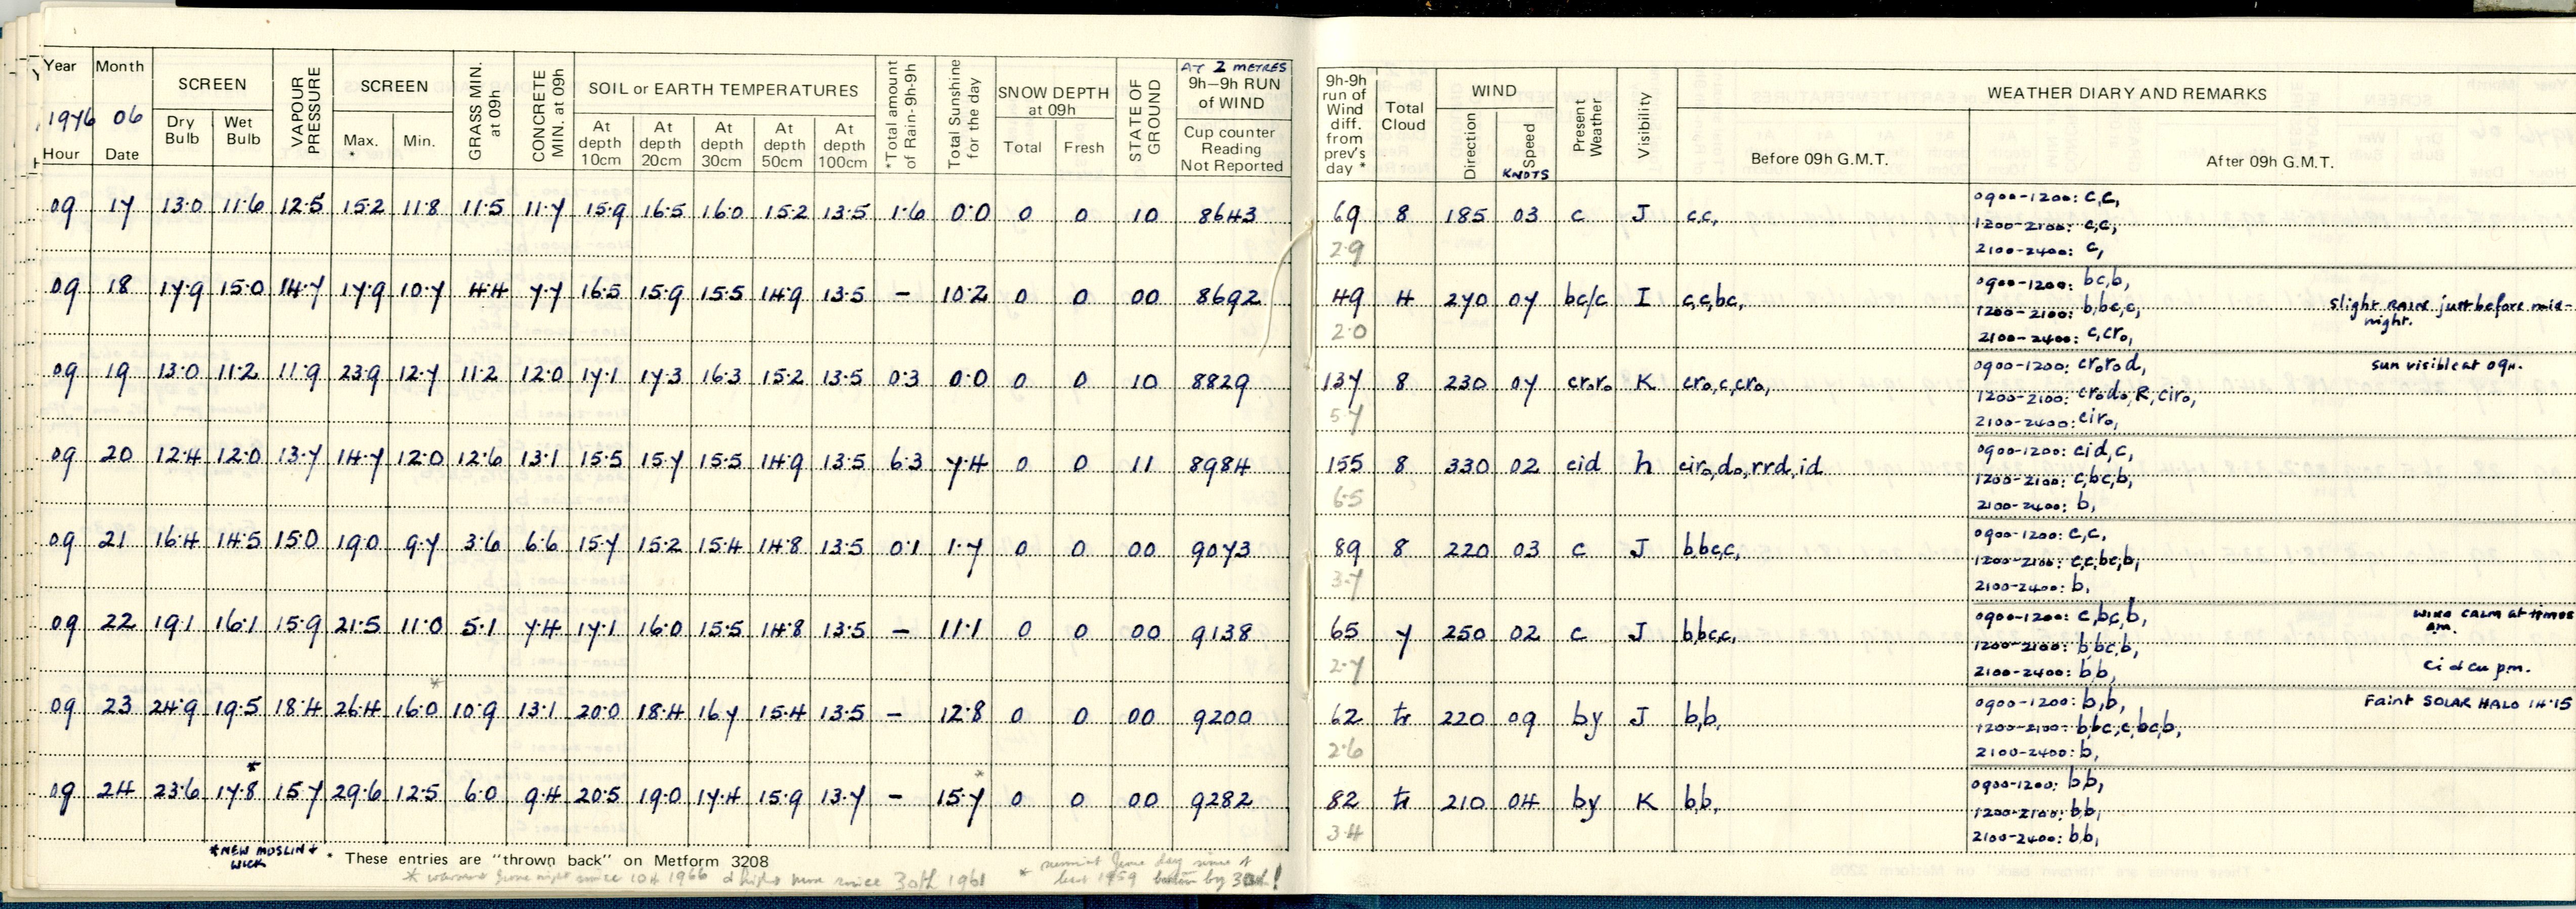 Year Month SCREEN VAPOUR PRESSURE SCREEN GRASS MIN. at 09h CONCRETE MIN. at 09h SOIL or EARTH TEMPERATURES *Total amount of Rain-9h-9h Total Sunshine for the day SNOW DEPTH at 09h STATE OF GROUND AT 2 METRES 9h–9h RUN of WIND 9h-9h run of Wind diff. from prev's day * Total Cloud WIND Present Weather Visibility WEATHER DIARY AND REMARKS
1976 06 Dry Bulb Wet Bulb Max. * Min. At depth 10cm At depth 20cm At depth 30cm At depth 50cm At depth 100cm Total Fresh Cup counter Reading Not Reported Direction Speed KNOTS Before 09h G.M.T. After 09h G.M.T.
Hour Date
09 17 13.0 11.6 12.5 15.2 11.8 11.5 11.7 15.9 16.5 16.0 15.2 13.5 1.6 0.0 0 0 10 8643 69 8 185 03 c J c,c, 0900-1200: c,c,
1200-2100: c,c,
2.9 2100-2400: c,
09 18 17.9 15.0 14.7 17.9 10.7 4.4 7.7 16.5 15.9 15.5 14.9 13.5 – 10.2 0 0 00 8692 49 4 270 07 bc/c I c,c,bc, 0900-1200: bc,b,
1200-2100: b,bc,c, slight RAIN just before mid-
night.
2.0 2100-2400: c,cro,
09 19 13.0 11.2 11.9 23.9 12.7 11.2 12.0 17.1 17.3 16.3 15.2 13.5 0.3 0.0 0 0 10 8829 137 8 230 07 croro K cro,c,cro, 0900-1200: crorod, sun visible at 09h.
1200-2100: crodo,R,ciro,
5.7 2100-2400: ciro,
09 20 12.4 12.0 13.7 14.7 12.0 12.6 13.1 15.5 15.7 15.5 14.9 13.5 6.3 7.4 0 0 11 8984 155 8 330 02 cid h ciro,do,rrd,id 0900-1200: cid,c,
1200-2100: c,bc,b,
6.5 2100-2400: b,
09 21 16.4 14.5 15.0 19.0 9.7 3.6 6.6 15.7 15.2 15.4 14.8 13.5 0.1 1.7 0 0 00 9073 89 8 220 03 c J b,bc,c, 0900-1200: c,c,
1200-2100: c,c,bc,b,
3.7 2100-2400: b,
09 22 19.1 16.1 15.9 21.5 11.0 5.1 7.4 17.1 16.0 15.5 14.8 13.5 – 11.1 0 0 00 9138 65 7 250 02 c J b,bc,c, 0900-1200: c,bc,b, WIND CALM at times
am.
1200-2100: b,bc,b,
2.7 2100-2400: b,b, Ci & cu p.m.
09 23 24.9 19.5 18.4 26.4 16.0* 10.9 13.1 20.0 18.4 16.7 15.4 13.5 – 12.8 0 0 00 9200 62 tr 220 09 by J b,b, 0900-1200: b,b, Faint SOLAR HALO 14.15
1200-2100: b,bc,c,bc,b,
2.6 2100-2400: b,
09 24 23.6 17.8* 15.7 29.6 12.5 6.0 9.4 20.5 19.0 17.4 15.9 13.7 – 15.7* 0 0 00 9282 82 tr 210 04 by K b,b, 0900-1200: b,b,
1200-2100: b,b,
3.4 2100-2400: b,b,
*NEW MUSLIN + WICK * These entries are "thrown back" on Metform 3208
* warmest June night since 10th 1966 & highest June since 30th 1961 * sunniest June day since at
least 1959